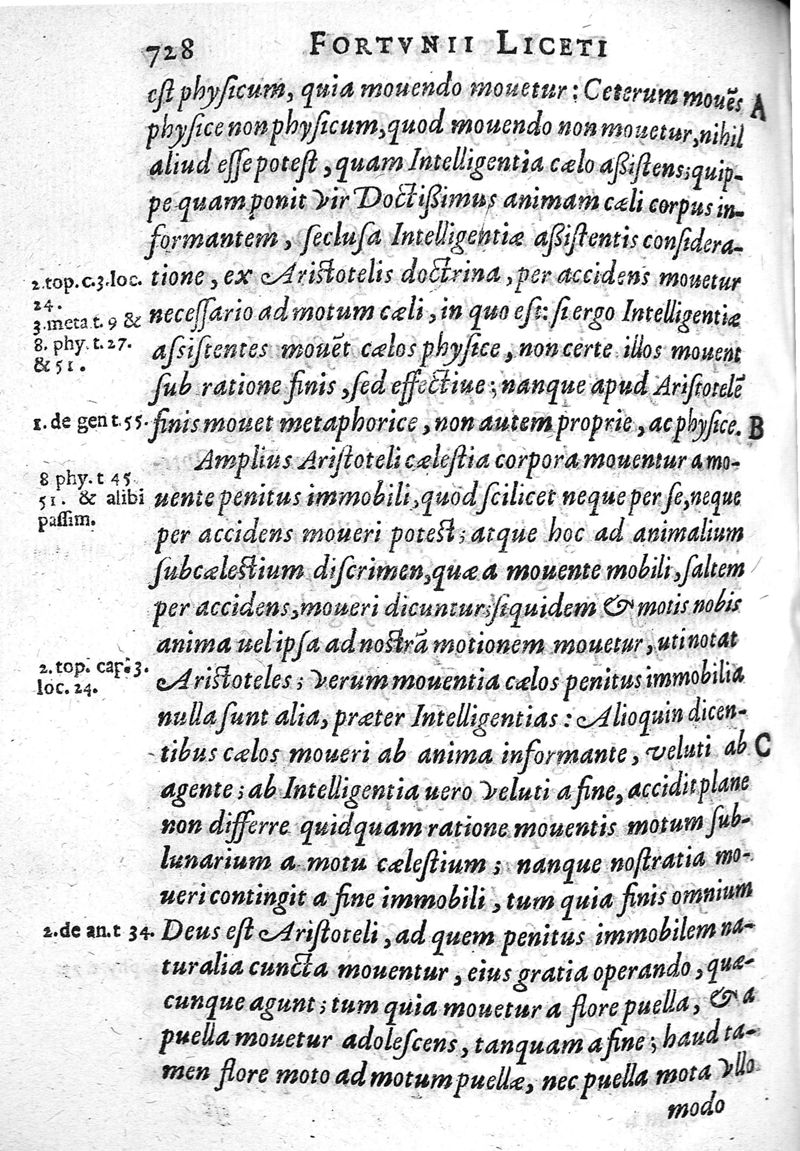 728 FORTVNII LICETI
est physicum, quia mouendo mouetur: Ceterum mouẽs A
physice non physicum, quod mouendo non mouetur, nihil
aliud esse potest, quam Intelligentia cælo aßistens; quip-
pe quam ponit Vir Doctißimus animam cæli corpus in-
formantem, seclusa Intelligentiæ aßistentis considera-
2. top. c. 3. loc. 24.
tione, ex Aristotelis doctrina, per accidens mouetur
3. meta t. 9 &
necessario ad motum cæli, in quo est: si ergo Intelligentiæ
8. phy. t. 27. & 51.
assistentes mouẽt cælos physice, non certe illos mouent
sub ratione finis, sed effectiue; nanque apud Aristotelẽ
1. de gen t. 55.
finis mouet metaphorice, non autem proprie, ac physice. B
Amplius Aristoteli cælestia corpora mouentur a mo-
8 phy. t 45 51. & alibi passim.
uente penitus immobili, quod scilicet neque per se, neque
per accidens moueri potest; atque hoc ad animalium
subcælestium discrimen, quæ a mouente mobili, saltem
per accidens, moueri dicuntur; siquidem & motis nobis
anima uel ipsa ad nostrã motionem mouetur, uti notat
2. top. cap. 3. loc. 24.
Aristoteles; Verum mouentia cælos penitus immobilia
nulla sunt alia, præter Intelligentias: Alioquin dicen-
tibus cælos moueri ab anima informante, veluti ab C
agente; ab Intelligentia uero Veluti a fine, accidit plane
non differre quidquam ratione mouentis motum sub-
lunarium a motu cælestium; nanque nostratia mo-
ueri contingit a fine immobili, tum quia finis omnium
2. de an. t 34.
Deus est Aristoteli, ad quem penitus immobilem na-
turalia cuncta mouentur, eius gratia operando, quæ-
cunque agunt; tum quia mouetur a flore puella, & a
puella mouetur adolescens, tanquam a fine; haud ta-
men flore moto ad motum puellæ, nec puella mota Vllo
modo